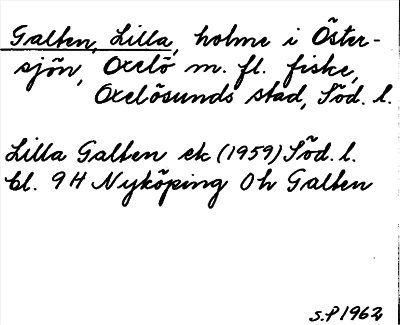 Galten, Lilla, holme i Öster-
sjön, Oxelö m. fl. fiske,
Oxelösunds stad, Söd. l.
Lilla Galten ek (1959) Söd. l.
bl. 9H Nyköping 0h Galten
S.P 1962